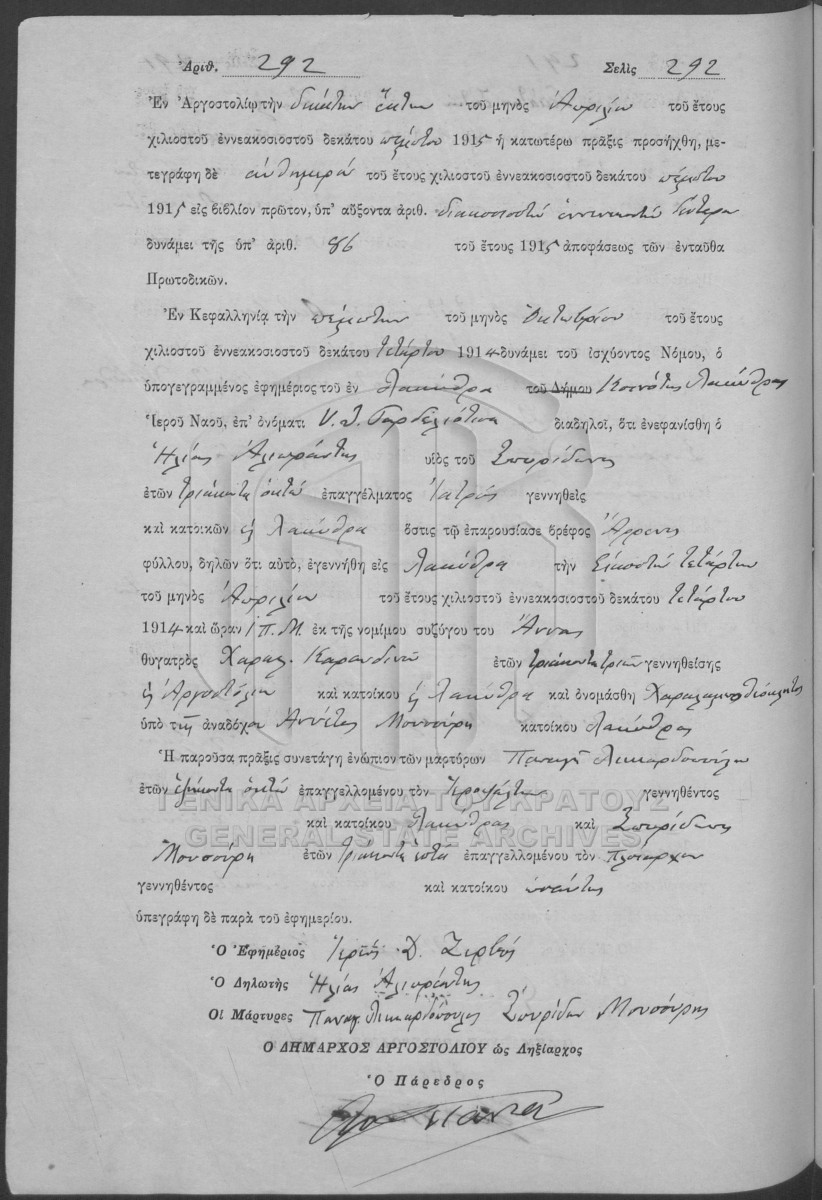 Ἀριθ. 292 Σελὶς 292
Ἐν Ἀργοστολίῳ τὴν δεκάτην ἕκτην τοῦ μηνὸς Ἀπριλίου τοῦ ἔτους
χιλιοστοῦ ἐννεακοσιοστοῦ δεκάτου πέμπτου 1915 ἡ κατωτέρω πρᾶξις προσήχθη, με-
τεγράφη δὲ αὐθημερὸν τοῦ ἔτους χιλιοστοῦ ἐννεακοσιοστοῦ δεκάτου πέμπτου
1915 εἰς βιβλίον πρῶτον, ὑπ' αὔξοντα ἀριθ. διακοσιοστὸν ἐννενηκοστὸν δεύτερον
δυνάμει τῆς ὑπ' ἀριθ. 86 τοῦ ἔτους 1915 ἀποφάσεως τῶν ἐνταῦθα
Πρωτοδικῶν.
Ἐν Κεφαλληνίᾳ τὴν πέμπτην τοῦ μηνὸς Ὀκτωβρίου τοῦ ἔτους
χιλιοστοῦ ἐννεακοσιοστοῦ δεκάτου τετάρτου 1914 δυνάμει τοῦ ἰσχύοντος Νόμου, ὁ
ὑπογεγραμμένος ἐφημέριος τοῦ ἐν Λακύθρα τοῦ Δήμου Κοινότης Λακύθρας
Ἱεροῦ Ναοῦ, ἐπ' ὀνόματι διαδηλοῖ, ὅτι ἐνεφανίσθη ὁ
Ἠλίας Ἀλιπράντης υἱὸς τοῦ Σπυρίδωνος
ἐτῶν τριάκοντα ὀκτὼ ἐπαγγέλματος Ἰατρὸς γεννηθεὶς
καὶ κατοικῶν ἐν Λακύθρα ὅστις τῷ ἐπαρουσίασε βρέφος Ἄρρενος
φύλλου, δηλῶν ὅτι αὐτὸ, ἐγεννήθη εἰς Λακύθρα τὴν Εἰκοστὴν τετάρτην
τοῦ μηνὸς Ἀπριλίου τοῦ ἔτους χιλιοστοῦ ἐννεακοσιοστοῦ δεκάτου τετάρτου
1914 καὶ ὥραν 1 Π.Μ. ἐκ τῆς νομίμου συζύγου του Ἄννης
θυγατρὸς Χαραλ. Καρανδινοῦ ἐτῶν τριάκοντα τριῶν γεννηθείσης
ἐν Ἀργοστόλιον καὶ κατοίκου ἐν Λακύθρα καὶ ὀνομάσθη Χαραλαμπο
ὑπὸ τῆς ἀναδόχου Ἀννέτας Μουσούρη κατοίκου Λακύθρας
Ἡ παροῦσα πρᾶξις συνετάγη ἐνώπιον τῶν μαρτύρων Παναγῆ Λικιαρδοπούλου
ἐτῶν ἑξήκοντα ὀκτὼ ἐπαγγελλομένου τὸν Ἱεροψάλτην γεννηθέντος
καὶ κατοίκου Λακύθρας καὶ Σπυρίδωνος
Μουσούρη ἐτῶν τριάκοντα ἑπτὰ ἐπαγγελλομένου τὸν πλοίαρχον
γεννηθέντος καὶ κατοίκου ὡσαύτως
ὑπεγράφη δὲ παρὰ τοῦ ἐφημερίου.
Ὁ Ἐφημέριος Ἱερεὺς Δ. Ζερβὸς
Ὁ Δηλωτὴς Ἠλίας Ἀλιπράντης
Οἱ Μάρτυρες Παναγ. Λικιαρδόπουλος Σπυρίδων Μουσούρης
Ο ΔΗΜΑΡΧΟΣ ΑΡΓΟΣΤΟΛΙΟΥ ὡς Ληξίαρχος
Ὁ Πάρεδρος
ΓΕΝΙΚΑ ΑΡΧΕΙΑ ΤΟΥ ΚΡΑΤΟΥΣ
GENERAL STATE ARCHIVES